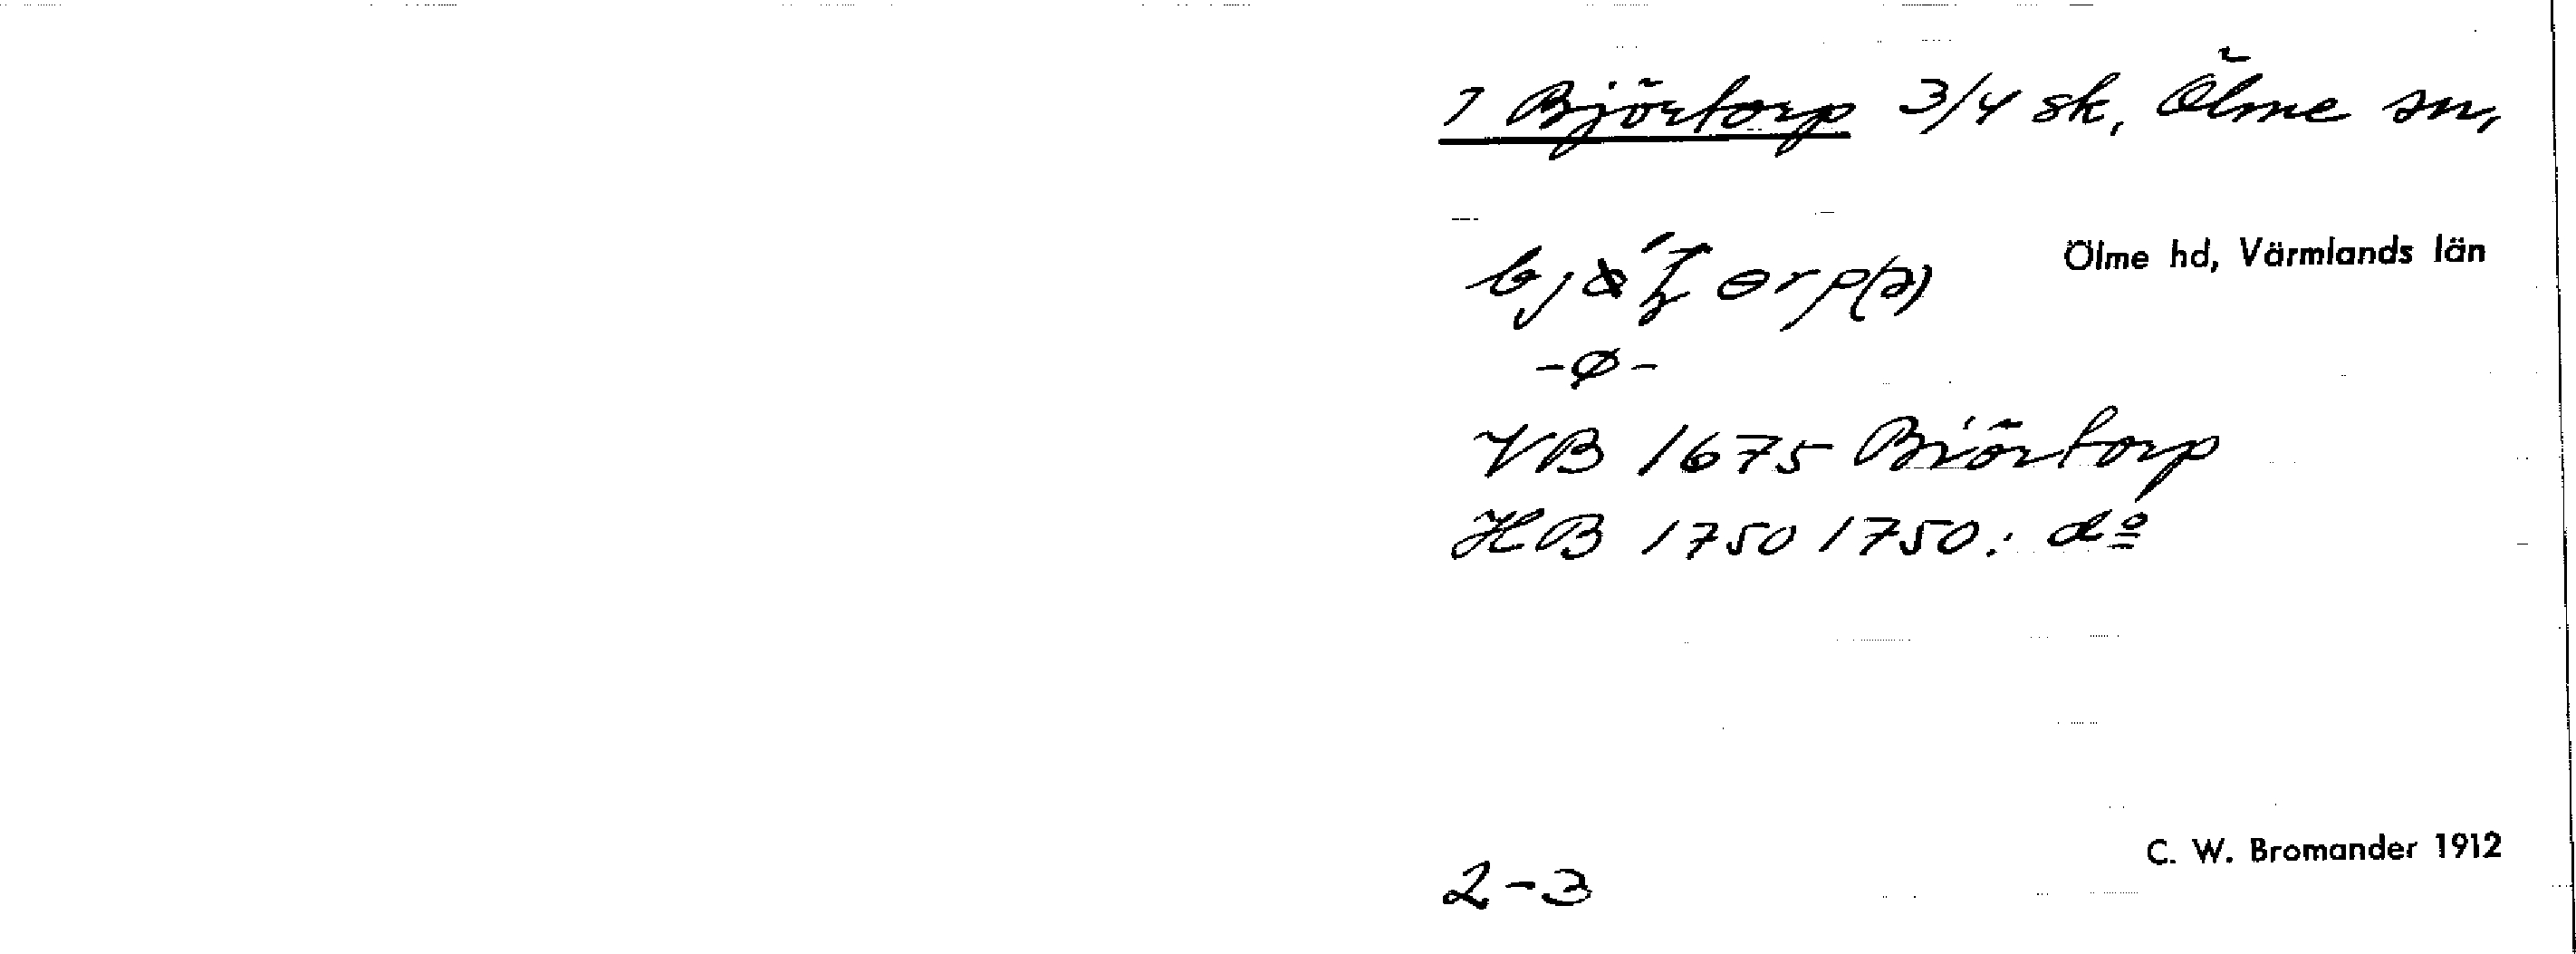 1 Björtorp 3/4 sk, Ölme sn,
Ölme hd, Värmlands län
-ø-
VB 1675 Biörtorp
HB 1750 1750: dº
C. W. Bromander 1912
2-3